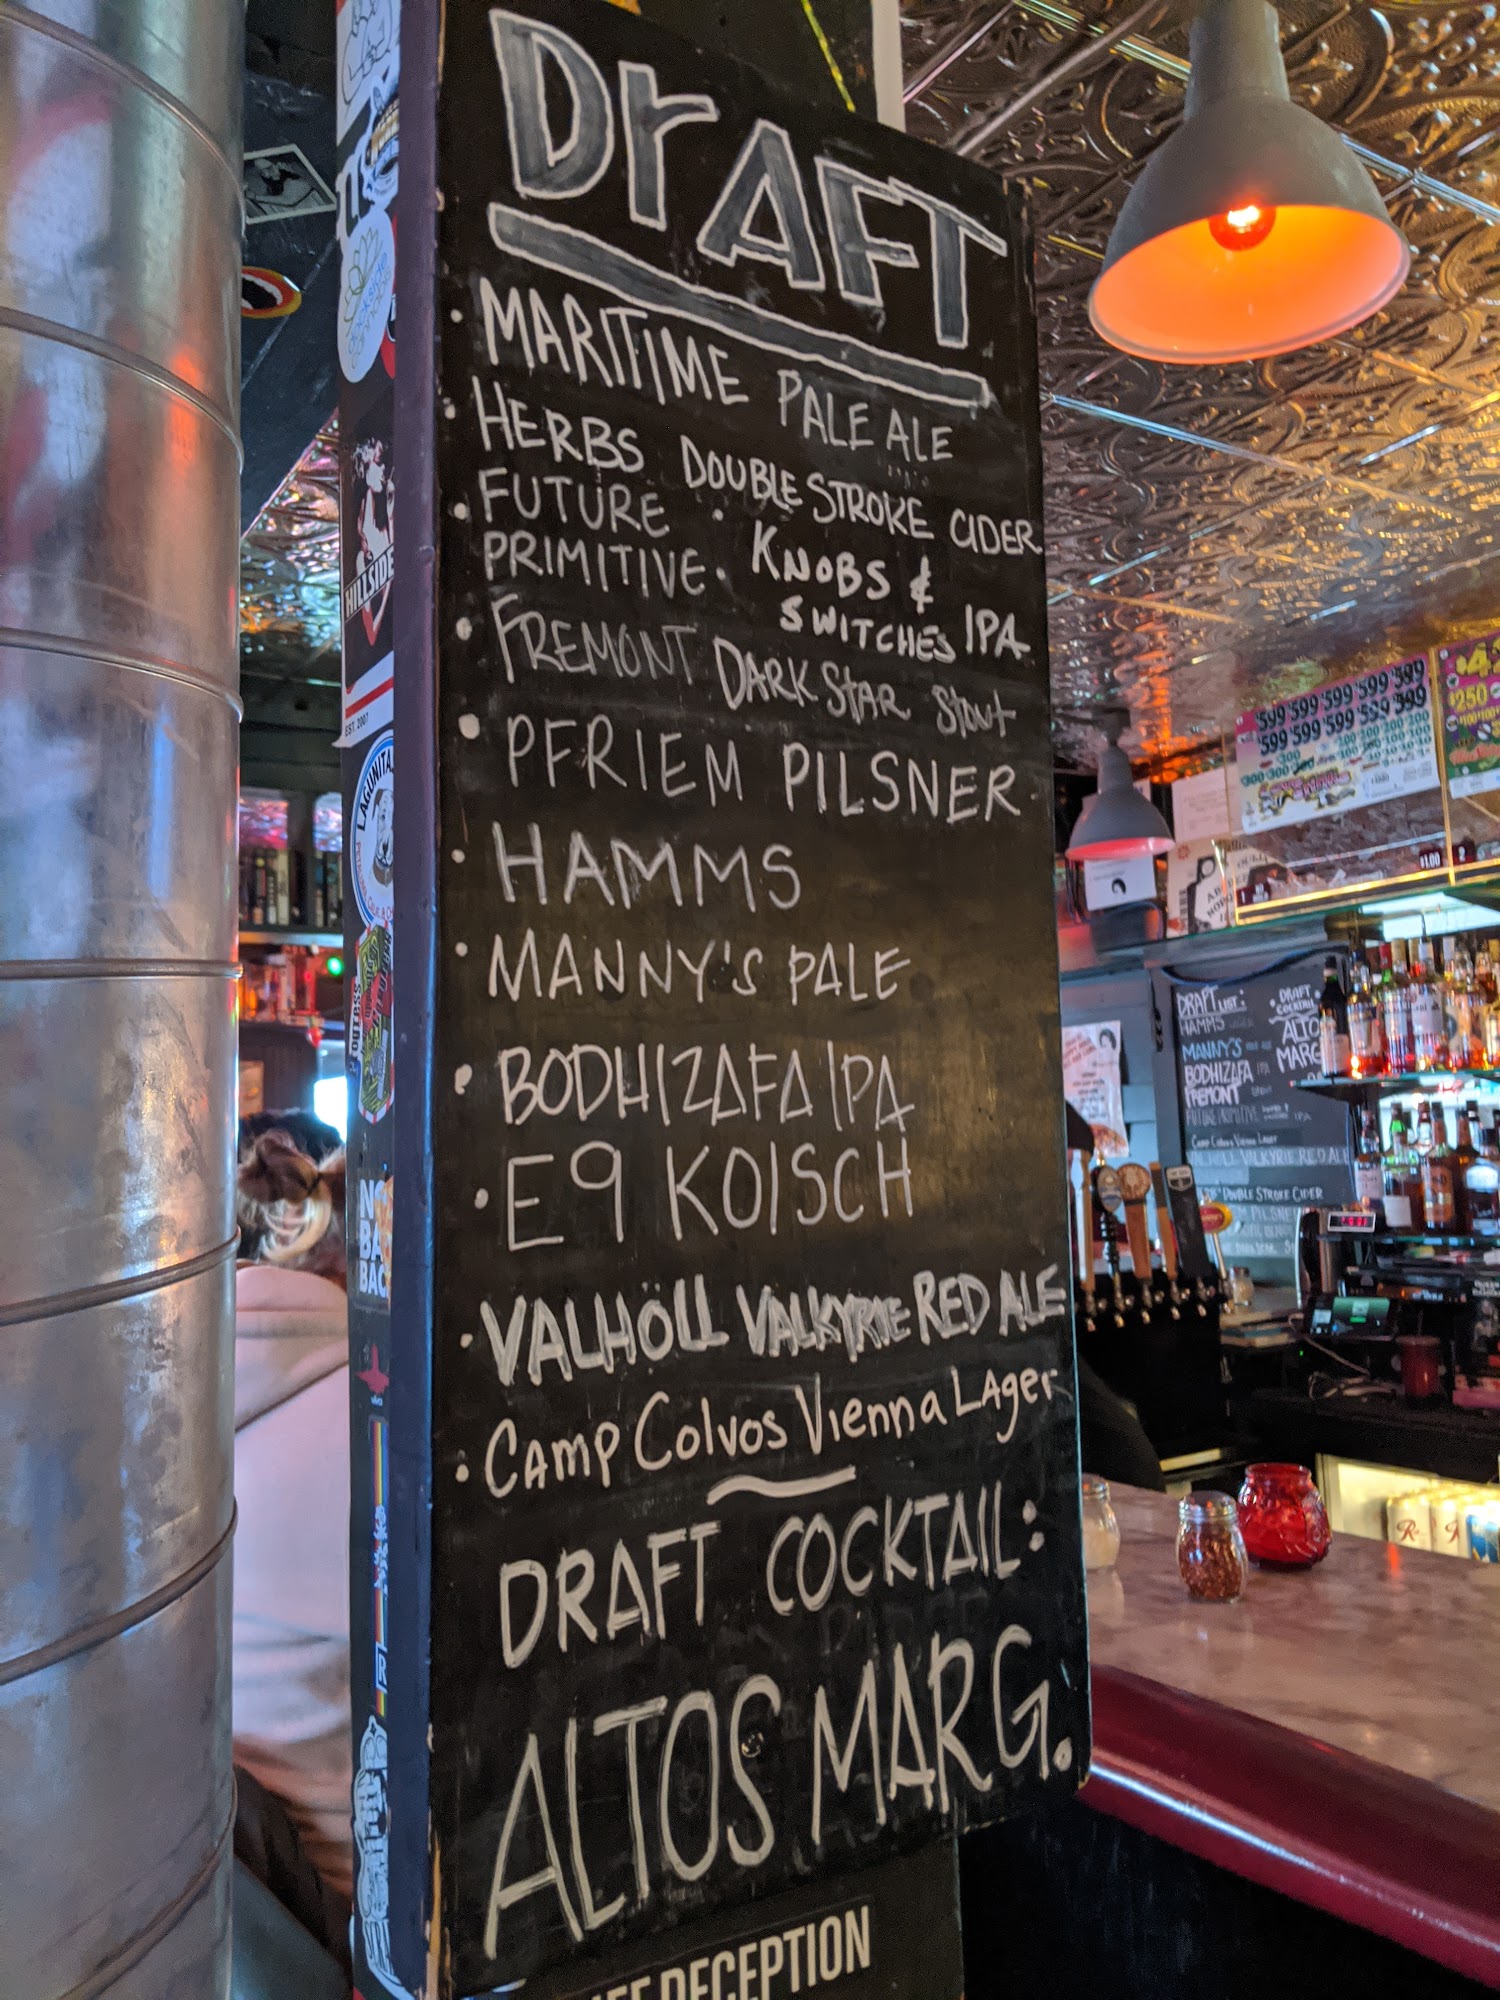 DrAFT
• MARITIME PALE ALE
• HERBS DOUBLE STROKE CIDER
• FUTURE PRIMITIVE • KNOBS & SWITCHES IPA
• FREMONT DARK STAR STOUT
• PFRIEM PILSNER
• HAMMS
• MANNY'S PALE
• BODHIZAFA IPA
• E9 KOLSCH
• VALHÖLL VALKYRIE RED ALE
• CAMP COLVOS VIENNA LAGER
DRAFT COCKTAIL:
ALTOS MARG.
DECEPTION
HILLSIDE
EST. 2007
LAGUNITA
OUTBSS
NO
BA
BAC
R
599 599 599 599 599
599 599 599 599 599
$250
$1.00
DRAFT LIST:
HAMMS LAGER
MANNY'S
BODHIZAFA IPA
FREMONT
FUTURE PRIMITIVE IPA
CAMP COLVOS VIENNA LAGER
VALHÖLL VALKYRIE RED ALE
DOUBLE STROKE CIDER
PILSNER
• DRAFT
COCKTAIL
ALTO
MARG
R